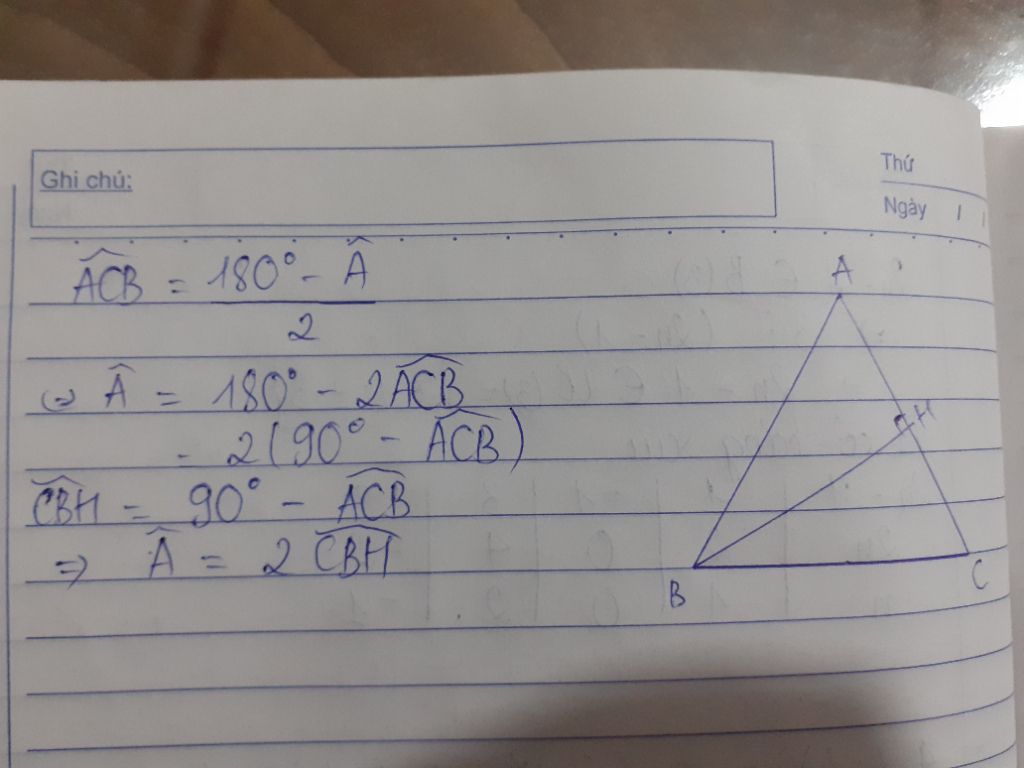 Ghi chú:
Thứ
Ngày / /
$\widehat{ACB} = \frac{180° - \widehat{A}}{2}$
⇔ $\widehat{A} = 180° - 2\widehat{ACB}$
$= 2(90° - \widehat{ACB})$
$\widehat{CBH} = 90° - \widehat{ACB}$
⇒ $\widehat{A} = 2\widehat{CBH}$
A
H
B
C